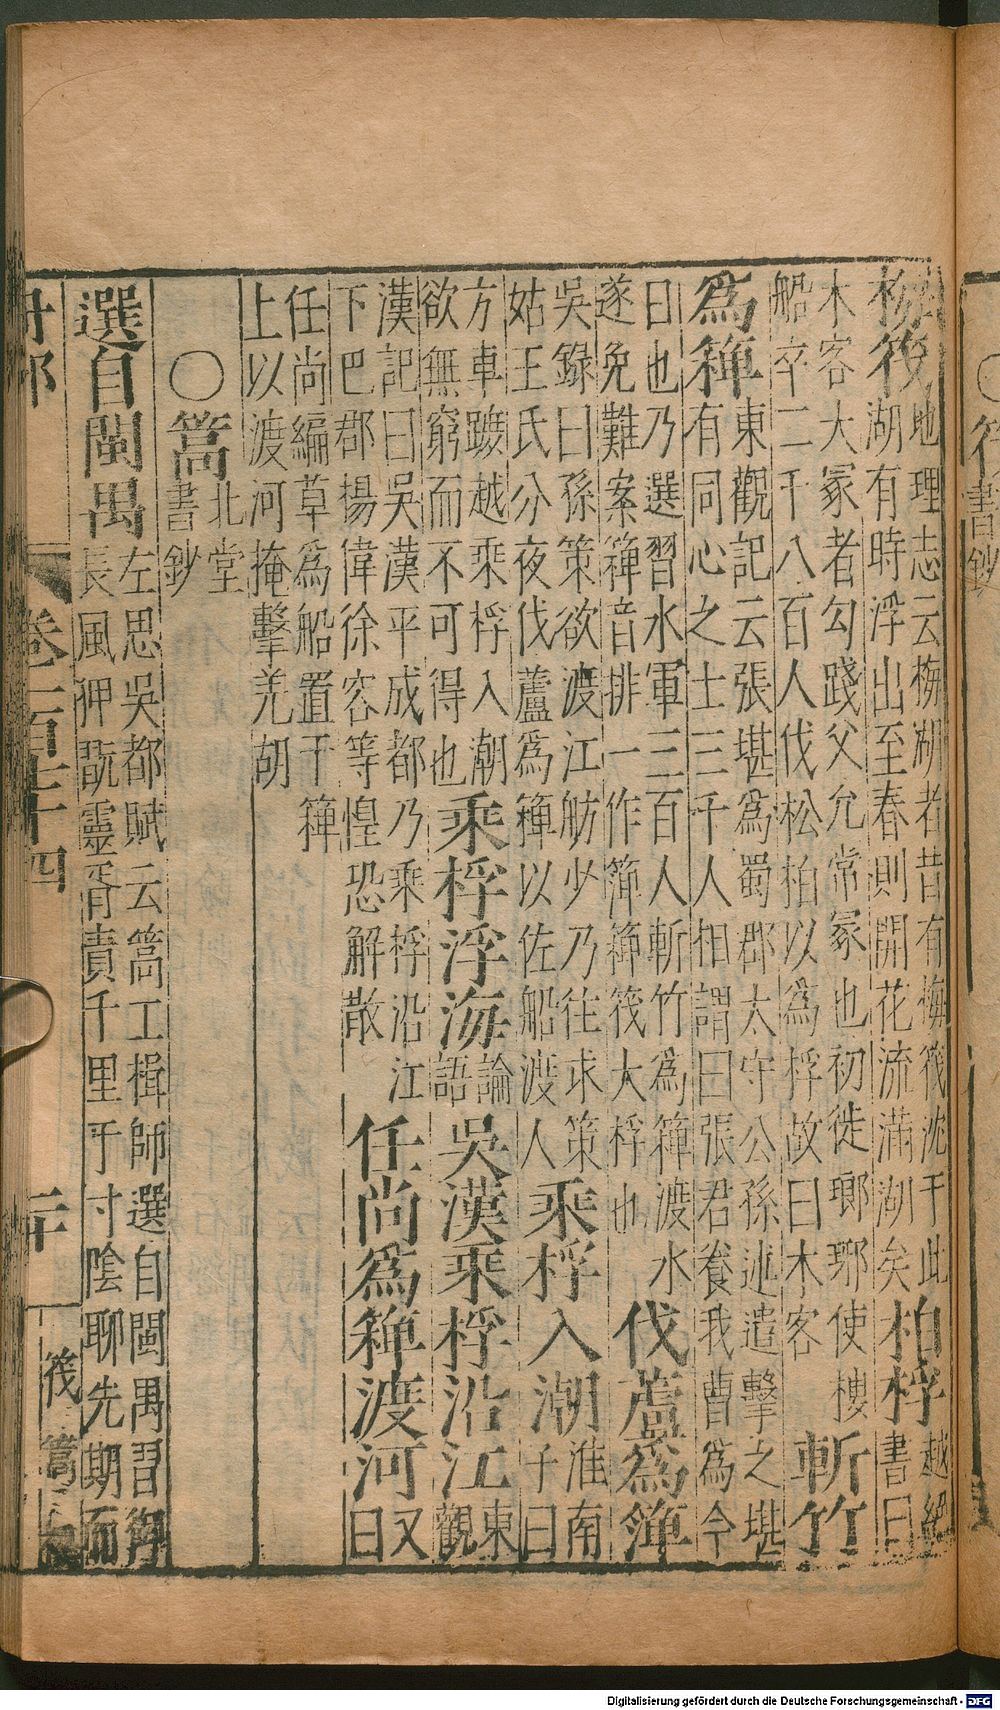 梅筏
地理志云梅湖者昔有梅筏沈于此
湖有時浮出至春則開花流滿湖矣
柏桴
越絕
書曰
木客大冢者勾踐父允常冢也初徙瑯琊使樓
船卒二千八百人伐松柏以為桴故曰木客
斬竹
為簰
東觀記云張堪為蜀郡太守公孫述遣擊之堪
有同心之士三千人相謂曰張君養我曹為今
日也乃選習水軍三百人斬竹為簰渡水
遂免難案簰音排一作簿箄筏大桴也
伐蘆為簰
吳錄曰孫策欲渡江舫少乃往求策
姑王氏分夜伐蘆為簰以佐船渡人
乘桴入潮
淮南
子曰
方車蹠越乘桴入潮
欲無窮而不可得也
乘桴浮海
論
語
吳漢乘桴沿江
東
觀
漢記曰吳漢平成都乃乘桴沿江
下巴郡揚偉徐容等惶恐解散
任尚為簰渡河
又
曰
任尚編草為船置于簰
上以渡河掩擊羌胡
〇篙
北堂
書鈔
選自閩禺
左思吳都賦云篙工楫師選自閩禺習御
長風狎翫靈胥責千里于寸陰聊先期而
舟部
卷一百七十四
二十
筏 篙